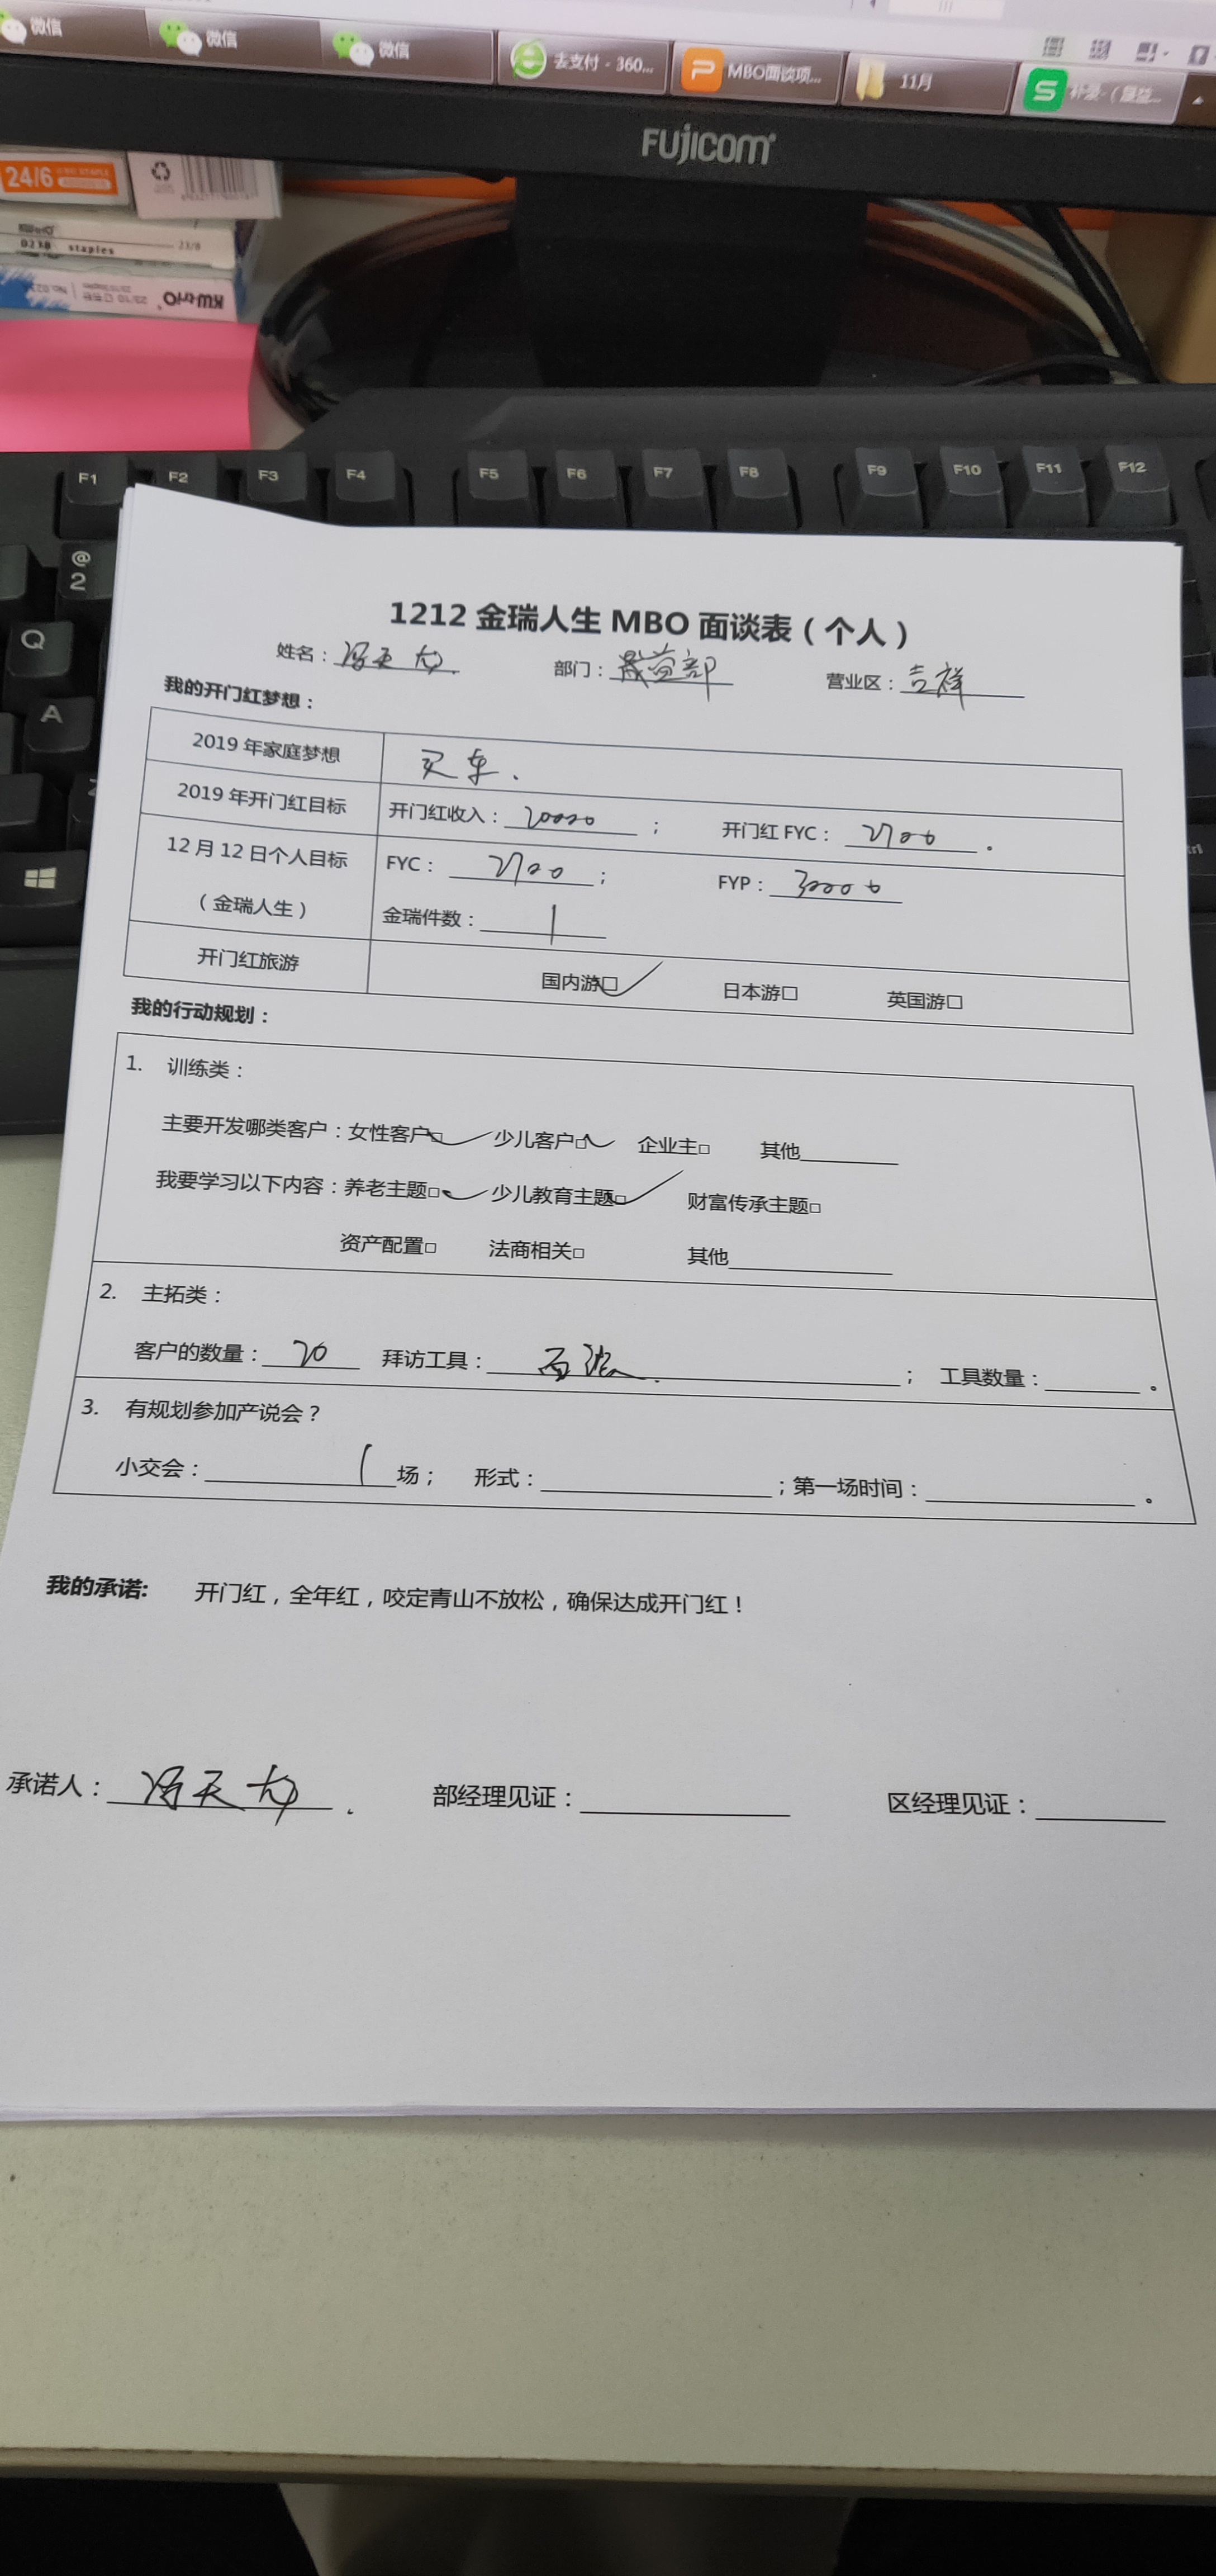 微信 微信 微信 去支付 - 360... MBO面谈项... 11月
FUJICOM
24/6
0238 staples 23/8
KW-triO
F1 F2 F3 F4 F5 F6 F7 F8 F9 F10 F11 F12
@
2
Q
A
1212 金瑞人生 MBO 面谈表（个人）
姓名： 部门： 营业区：吉祥
我的开门红梦想：
2019 年家庭梦想 买车.
2019 年开门红目标 开门红收入：20000； 开门红 FYC：2700。
12 月 12 日个人目标 FYC：2700； FYP：30000
（金瑞人生） 金瑞件数：1
开门红旅游 国内游□✓ 日本游□ 英国游□
我的行动规划：
1. 训练类：
主要开发哪类客户：女性客户□✓ 少儿客户□✓ 企业主□ 其他
我要学习以下内容：养老主题□✓ 少儿教育主题□✓ 财富传承主题□
资产配置□ 法商相关□ 其他
2. 主拓类：
客户的数量：20 拜访工具：； 工具数量：。
3. 有规划参加产说会？
小交会：1场； 形式：；第一场时间：。
我的承诺: 开门红，全年红，咬定青山不放松，确保达成开门红！
承诺人： 部经理见证： 区经理见证：